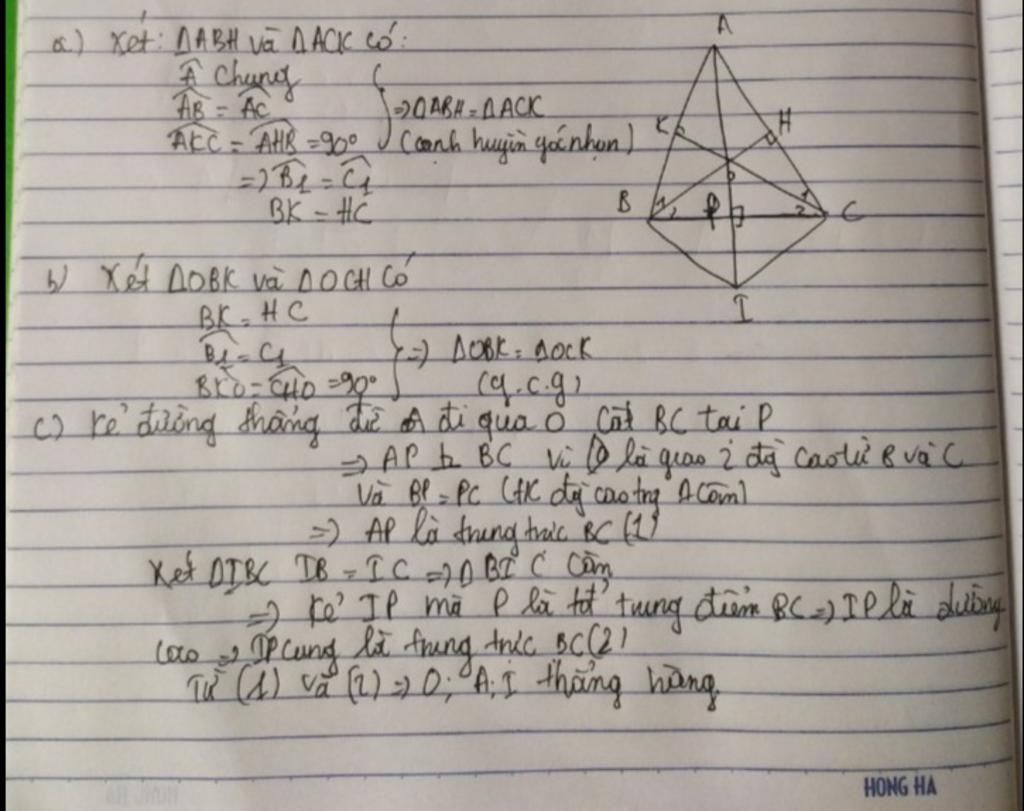 a) Xét: ΔABH và ΔACK có:
Â chung
AB = AC
AKC = AHB = 90°
⇒ ΔABH = ΔACK
(cạnh huyền góc nhọn)
⇒ B1 = C1
BK = HC
A
K
H
O
B
1
2
P
1
2
C
I
b) Xét ΔOBK và ΔOCH có
BK = HC
B1 = C1
BKO = CHO = 90°
⇒ ΔOBK = ΔOCK
(g.c.g)
c) Kẻ đường thẳng từ A đi qua O cắt BC tại P
⇒ AP ⊥ BC vì O là giao 2 đg cao từ B và C
và BP = PC (t/c đg cao trg Δ cân)
⇒ AP là trung trực BC (1)
Xét ΔIBC IB = IC ⇒ Δ BIC cân
⇒ Kẻ IP mà P là trung điểm BC ⇒ IP là đường
cao ⇒ IP cung là trung trực BC (2)
Từ (1) và (2) ⇒ O; A; I thẳng hàng
HONG HA